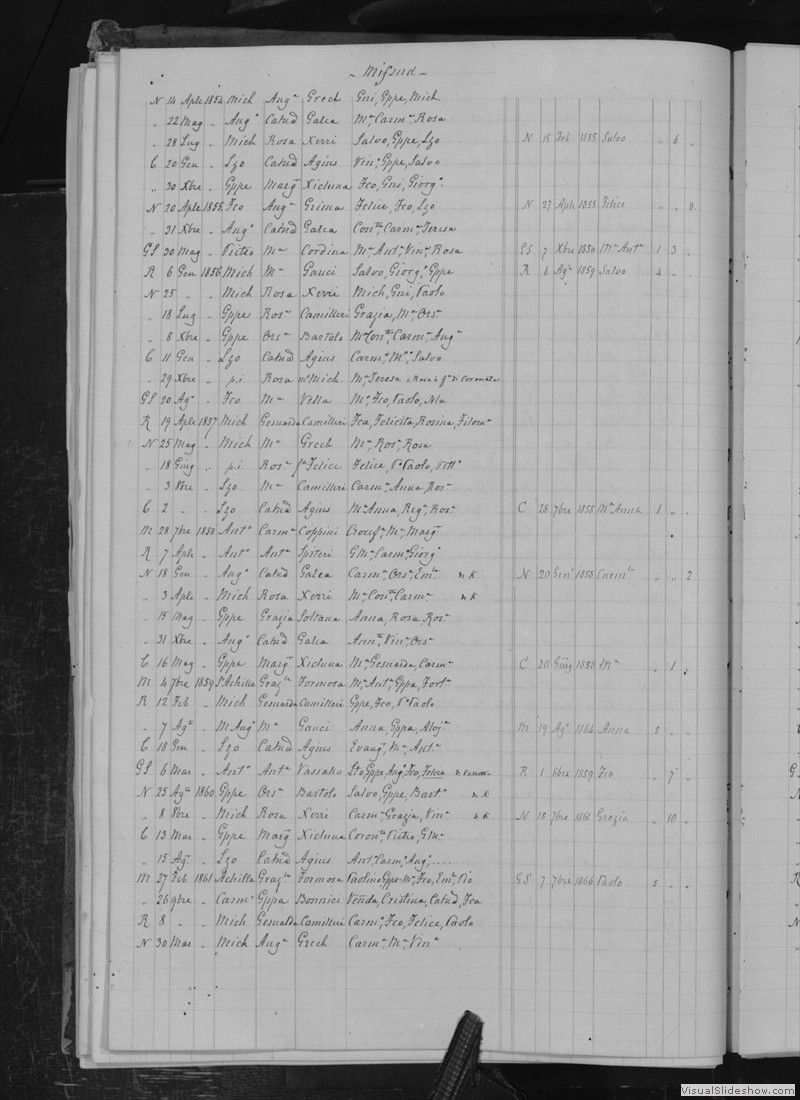 Mifsud
N 14 Aple 1854 Mich Augª Grech Gni, Gppe, Mich.
„ 22 Mag „ Augº Catnd Galea Mª Carmª Rosa
„ 28 Lug „ Mich Rosa Xerri Salvo, Gppe, Lzo N 15 Feb 1855 Salvo „ 6 „
C 20 Gen „ Lzo Catnd Agius Vinº Gppe, Salvo
„ 30 Xbre „ Gppe Margª Xicluna Fco, Gni, Giorgº
N 20 Aple 1855 Fco Augª Grima Felice, Fco, Lzo N 27 Aple 1855 Felice „ „ 8
„ 31 Xbre „ Augº Catnd Galea Contª Carmª Teresa
GS 30 Mag „ Pietro Mª Cordina Mª Antª Vinª Rosa GS 7 Xbre 1856 Mª Antª 1 3 „
R 6 Gen 1856 Mich Mª Gauci Salvo, Giorgº, Gppe R 6 Agº 1859 Salvo 4 „ „
N 25 „ „ Mich Rosa Xerri Mich, Gni, Paolo
„ 18 Lug „ Gppe Rosª Camilleri Grazia, Mª Orsª
„ 8 Xbre „ Gppe Orsª Bartolo Mª Contª Carmª Augª
C 11 Gen „ Lzo Catnd Agius Carmº Mª, Salvo
„ 29 Xbre „ p.i. Rosa Mich. Mª Teresa
GS 20 Agº „ Fco Mª Vella Mª, Fco, Paolo,
R 19 Aple 1857 Mich Gesualda Camilleri Fca, Felicita, Rosina, Filomª
N 25 Mag „ Mich Mª Grech Mª, Rosª, Rosa
„ 18 Giug „ p.i. Rosª fª Felice Felice, Pº Paolo, Vittº
„ 3 8bre „ Lzo Mª Camilleri Carmª Anna, Rosª
C 2 „ „ Lzo Catnd Agius Mª Anna, Regª, Rosª C 28 7bre 1858 Mª Anna 1 „ „
M 28 7bre 1858 Antº Carmª Coppini Crocefª Mª Margª
R 7 Aple „ Antº Antª Spiteri G Mª Carmº Giorgº
N 18 Gen „ Augº Catnd Galea Carmª, Orsª, Emª N 20 Genº 1858 Carmª „ „ 2
„ 3 Aple „ Mich Rosa Xerri Mª Contª Carmª
„ 15 Mag „ Gppe Grazia Soltana Anna, Rosa, Rosª
„ 31 Xbre „ Augº Catnd Galea Annª Vinª Orsª
C 16 Mag „ Gppe Margª Xicluna Mª Gesualda, Carmª C 20 Giug 1858 Mª „ 1 „
M 4 7bre 1859 Achille Grazª Formosa Mª Antª Gppa, Fortª
R 12 Feb „ Mich Gesualda Camilleri Gppe, Fco, Pº Paolo
„ 7 Agº „ M Augº Mª Gauci Anna, Gppa, Alojª M 19 Agº 1864 Anna 5 „ „
C 18 Gen „ Lzo Catnd Agius Evangª, Mª, Antª
GS 6 Mar „ Antº Antª Vassallo Gppe, Augº, Fco, Felice R 1 8bre 1859 Fco „ 7 „
N 25 Agº 1860 Gppe Orsª Bartolo Salvo, Gppe, Bartº
„ 8 8bre „ Mich Rosa Xerri Carmª Grazia, Vinª N 15 7bre 1861 Grazia „ 10 „
C 13 Mar „ Gppe Margª Xicluna Coronº, Pietro, G Mª
„ 15 Agº „ Lzo Catnd Agius Antº Carmº Augº, ....
M 27 Feb 1861 Achille Grazª Formosa Paolino Gppe Mª, Fco, Emª, Pio GS 7 7bre 1866 Paolo 5 „ „
„ 26 9bre „ Carmº Gppa Bonnici Venda, Cristina, Catnd, Fca
R 8 „ „ Mich Gesualda Camilleri Carmº, Fco, Felice, Paolo
N 30 Mar „ Mich Augª Grech Carmª, Mª, Vinª
VisualSlideshow.com